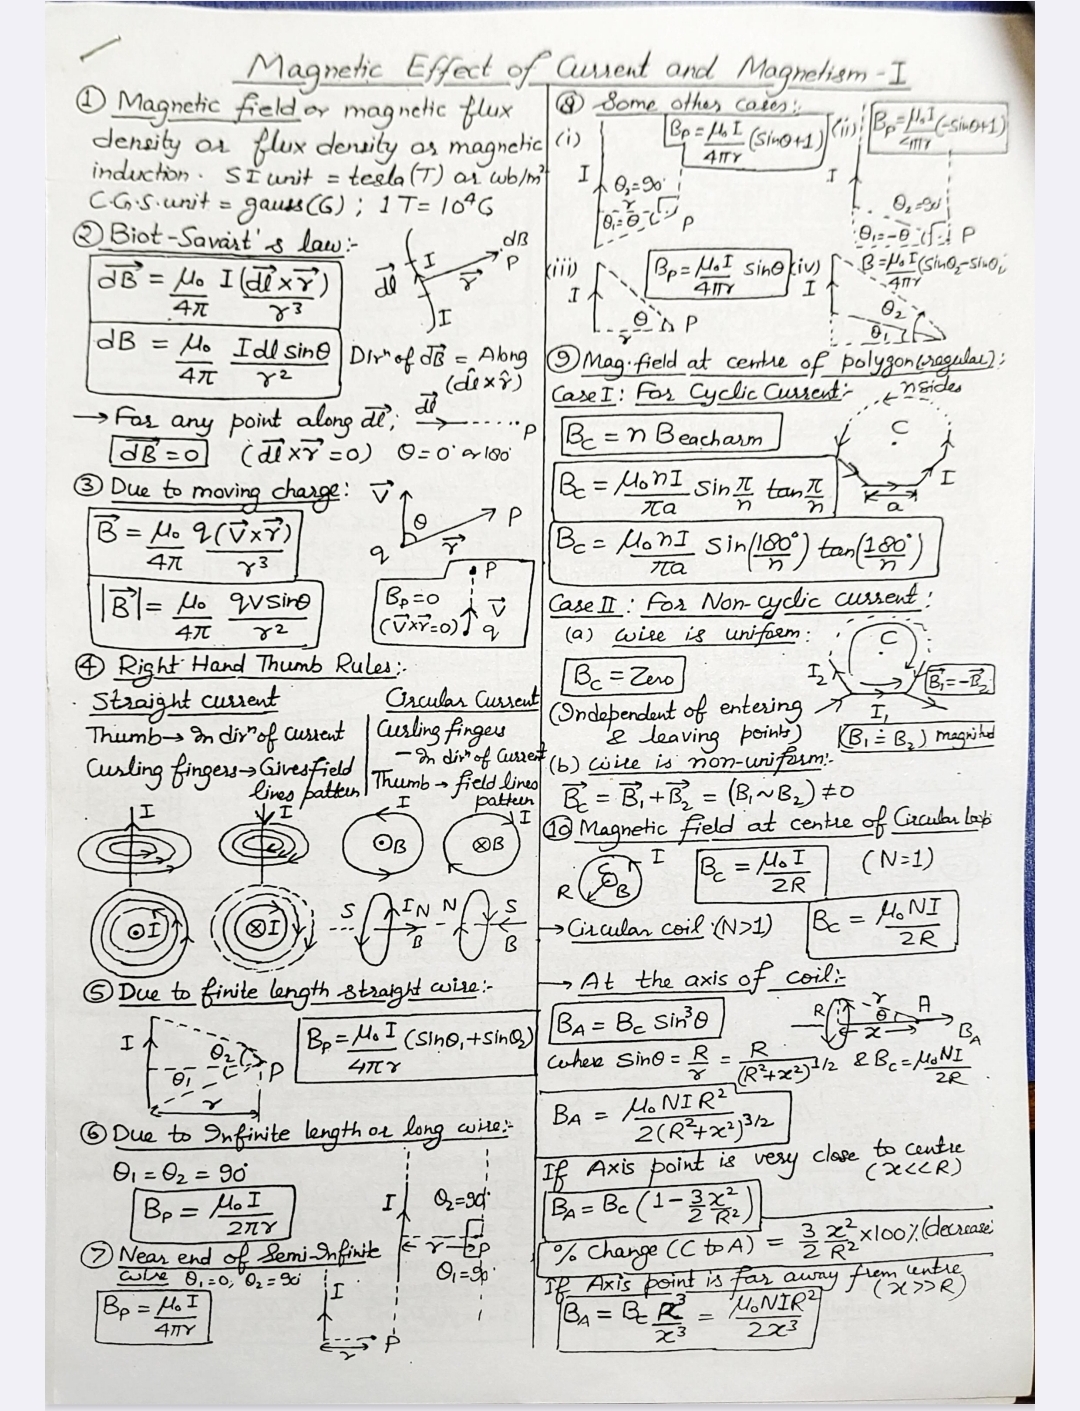 Magnetic Effect of Current and Magnetism - I
① Magnetic field or magnetic flux
density or flux density or magnetic
induction. SI unit = tesla (T) or wb/m²
C.G.S. unit = gauss (G) ; 1T = 10⁴G
② Biot-Savart's law:-
dB⃗ = μ₀/4π I(dl⃗ × r⃗)/r³
I
dB
P
dl⃗
r⃗
I
dB = μ₀/4π Idl sinθ/r²
Dirⁿ of dB⃗ = Along
(dl̂ × r̂)
→ For any point along dl⃗; dl⃗ P
dB⃗ = 0 (dl⃗ × r⃗ = 0) θ = 0° or 180°
③ Due to moving charge: V⃗
B⃗ = μ₀/4π q(V⃗ × r⃗)/r³
θ
P
q
r⃗
|B⃗| = μ₀/4π qVsinθ/r²
P
Bp = 0
V⃗
(V⃗×r⃗=0)
q
④ Right Hand Thumb Rules:-
Straight current
Thumb → In dirⁿ of current
Curling fingers → Gives field
lines pattern
Circular Current
Curling fingers
- In dirⁿ of current
Thumb → field lines
pattern
I I I I
⊙B ⊗B
⊙I ⊗I S I N N S
B B
⑤ Due to finite length straight wire:-
I
θ₂
θ₁
P
r
Bp = μ₀I/4πr (sinθ₁ + sinθ₂)
⑥ Due to Infinite length or long wire:-
θ₁ = θ₂ = 90°
Bp = μ₀I/2πr
I
θ₂ = 90°
r
P
θ₁ = 90°
⑦ Near end of Semi-Infinite
wire θ₁ = 0, θ₂ = 90°
Bp = μ₀I/4πr
I
r
P
⑧ Some other cases:-
(i) Bp = μ₀I/4πr (sinθ+1)
I
θ₂ = 90°
r
θ₁ = θ
P
(ii) Bp = μ₀I/4πr (-sinθ+1)
I
θ₂ = 90°
θ₁ = -θ
P
(iii) Bp = μ₀I/4πr sinθ
I
θ
P
r
(iv) B = μ₀I/4πr (sinθ₂ - sinθ₁
I
θ₂
θ₁
⑨ Mag. field at centre of polygon (regular):
Case I : For Cyclic Current:- n sides
Bc = n B eacharm
C
Bc = μ₀nI/πa sin π/n tan π/n
I
a
Bc = μ₀nI/πa sin(180°/n) tan(180°/n)
Case II : For Non-cyclic current:
(a) wire is uniform:
C
Bc = Zero
I₂
B⃗₁ = -B⃗₂
(Independent of entering
& leaving points)
I₁
(B₁ = B₂) magnitud
(b) wire is non-uniform:-
B⃗c = B⃗₁ + B⃗₂ = (B₁ ~ B₂) ≠ 0
⑩ Magnetic field at centre of Circular loop
I
C
B
R
Bc = μ₀I/2R (N=1)
→ Circular coil (N>1) Bc = μ₀NI/2R
→ At the axis of coil:-
BA = Bc sin³θ
R
r
θ
A
x
BA
where sinθ = R/r = R/(R²+x²)^1/2 & Bc = μ₀NI/2R
BA = μ₀NIR²/2(R²+x²)^3/2
If Axis point is very close to centre
(x<<R)
BA = Bc (1 - 3/2 x²/R²)
% Change (C to A) = 3/2 x²/R² × 100% (decrease
If Axis point is far away from centre
(x>>R)
BA = Bc R³/x³ = μ₀NIR²/2x³